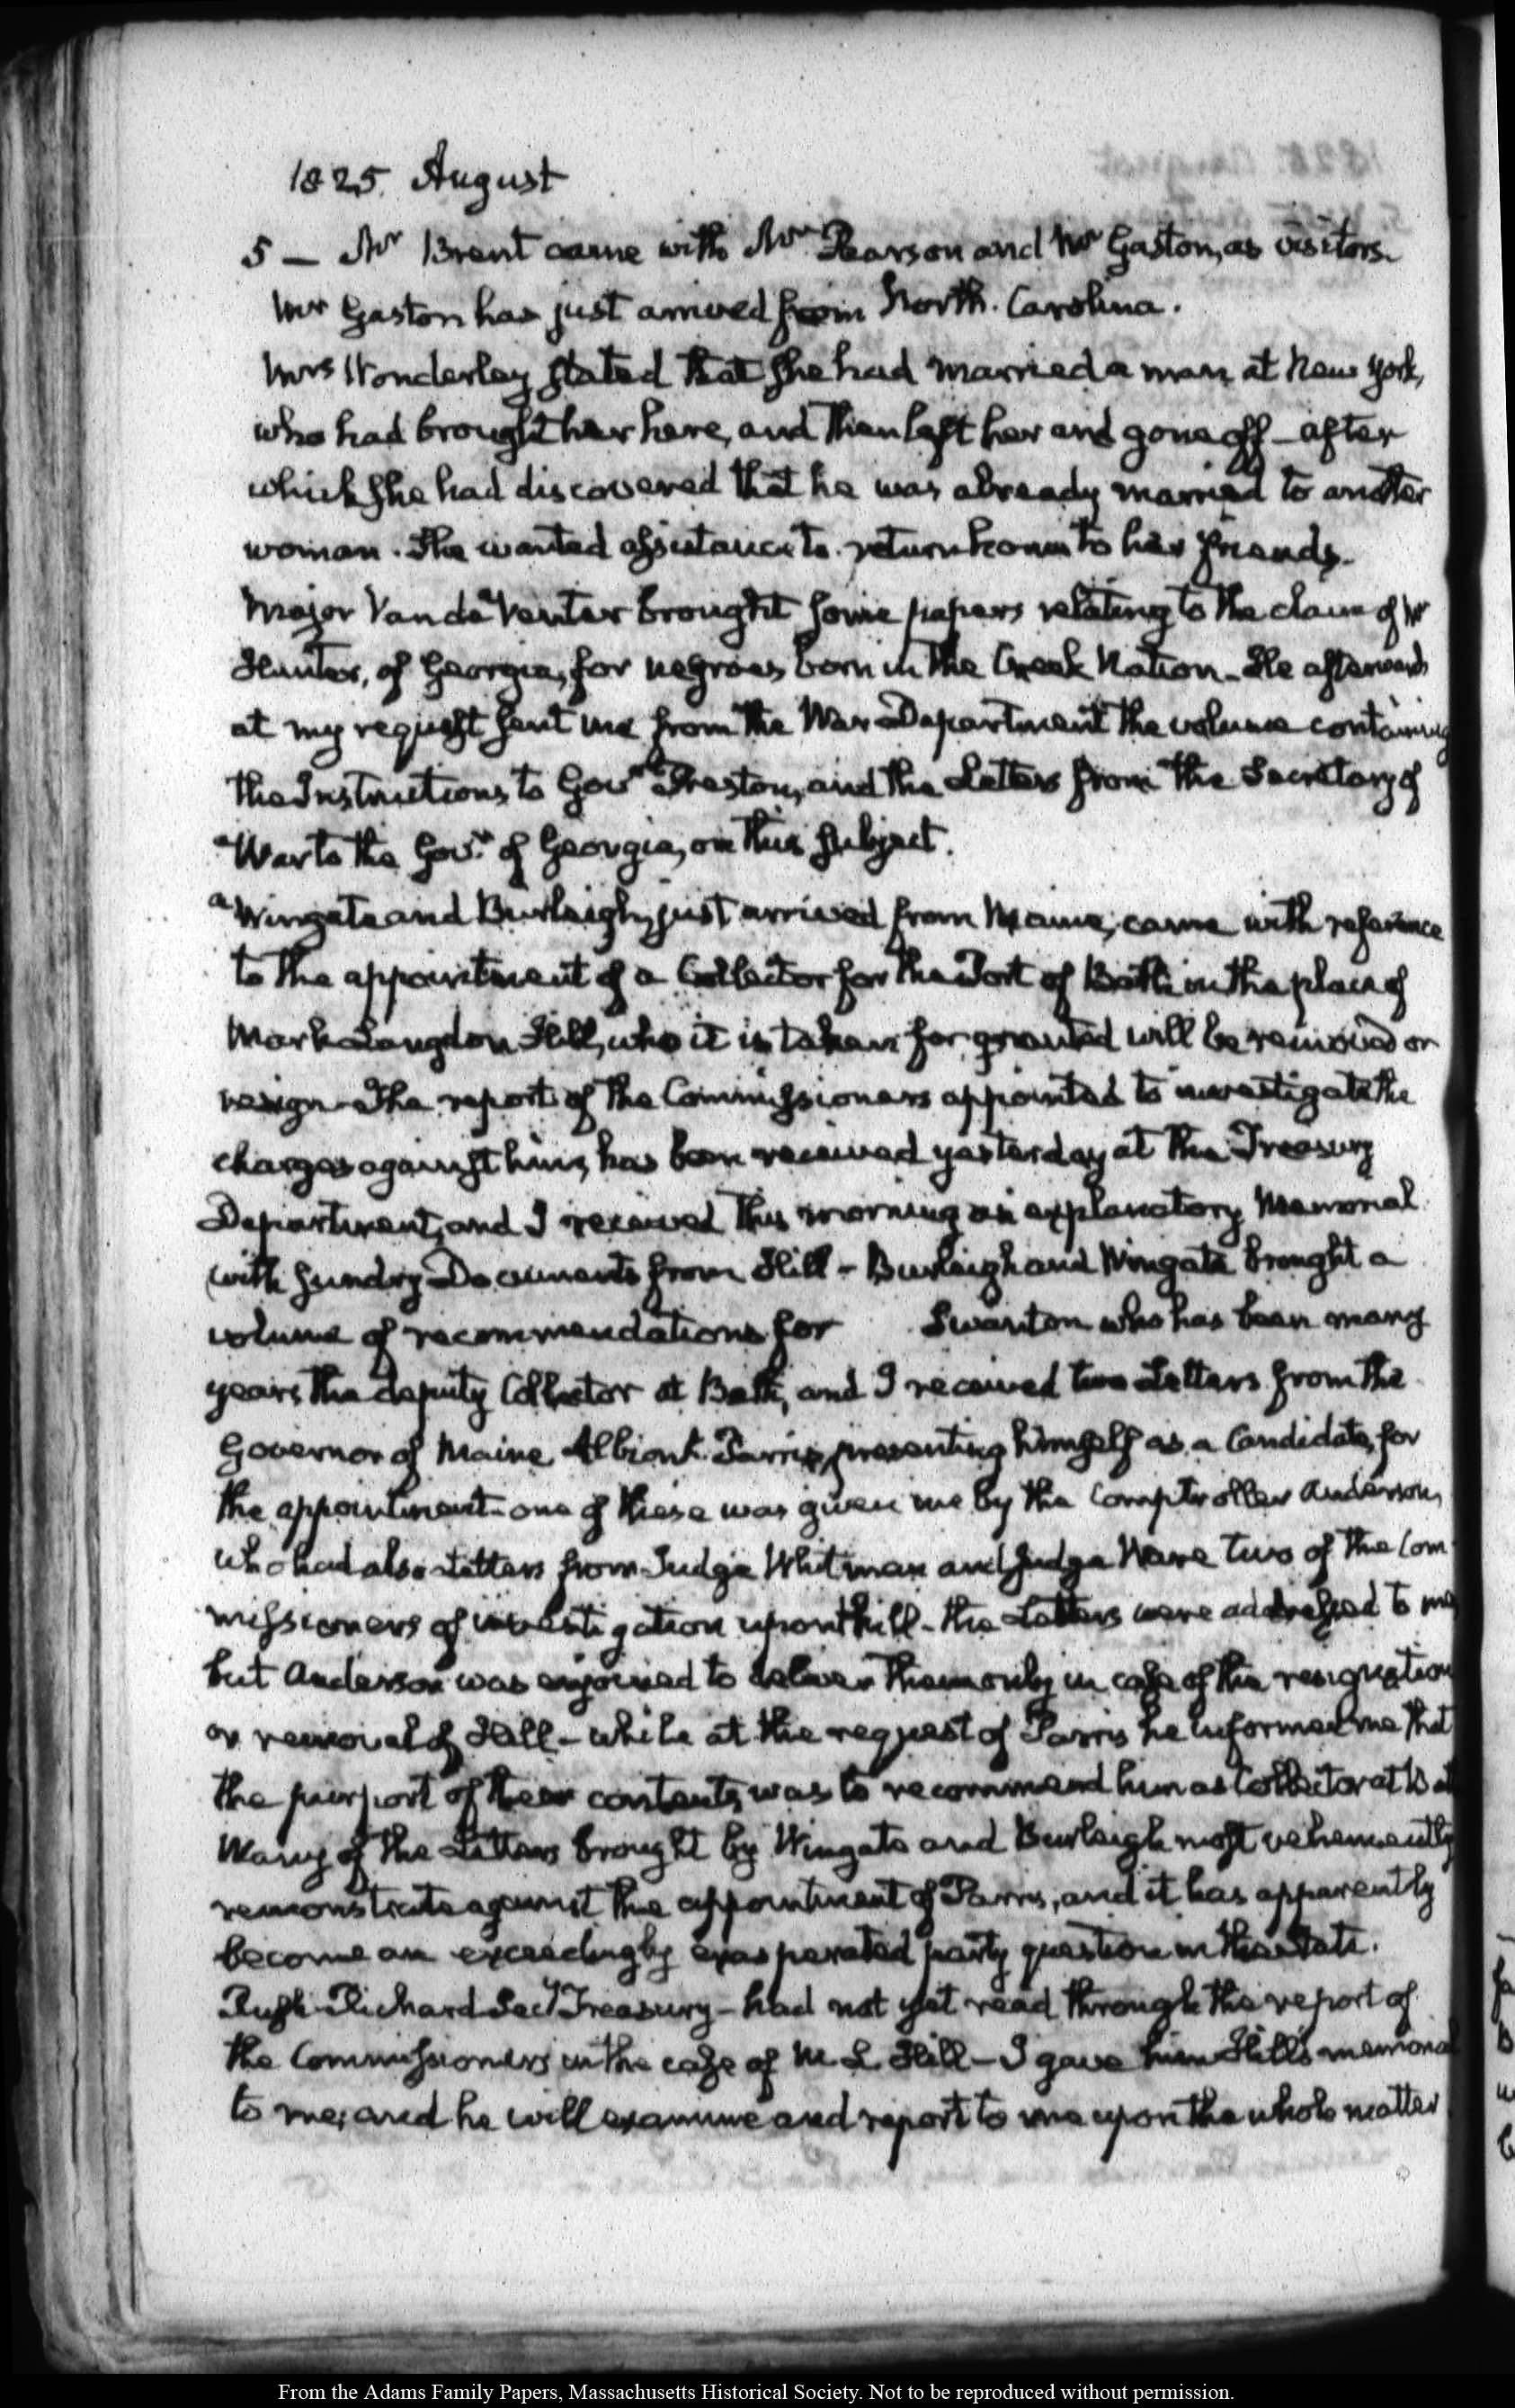 1825. August
5 — Mr Brent came with Mr Pearson and Mr Gaston, as visitors.
Mr Gaston has just arrived from North-Carolina.
Mrs Wonderley stated that she had married a man at New York,
who had brought her here, and then left her and gone off — after
which she had discovered that he was already married to another
woman. She wanted assistance to return home to her friends.
Major Vandeventer brought some papers relating to the claim of Mr
Hunter, of Georgia, for negroes born in the Creek Nation — He afterwards
at my request sent me from the War Department the volume containing
the Instructions to Govr Preston, and the Letters from the Secretary of
War to the Govr of Georgia, on this subject.
Wingate and Burleigh, just arrived from Maine, came with reference
to the appointment of a Collector for the Port of Bath in the place of
Mark Langdon Hill, who it is taken for granted will be removed or
resign — The report of the Commissioners appointed to investigate the
charges against him, has been received yesterday at the Treasury
Department, and I received this morning an explanatory Memorial
with sundry Documents from Hill — Burleigh and Wingate brought a
volume of recommendations for Swanton who has been many
years the deputy Collector at Bath, and I received two Letters from the
Governor of Maine Albion K. Parris, presenting himself as a Candidate, for
the appointment — one of these was given me by the Comptroller Anderson,
who had also Letters from Judge Whitman and Judge Ware two of the Com-
missioners of investigation upon Hill — the Letters were addressed to me,
but Anderson was enjoined to deliver them only in case of the resignation
or removal of Hill — while at the request of Parris he informed me that
the purport of their contents was to recommend him as Collector at Bath
Many of the Letters brought by Wingate and Burleigh most vehemently
remonstrate against the appointment of Parris, and it has apparently
become an exceedingly exasperated party question in the State.
Rush Richard Secy Treasury — had not yet read through the report of
the Commissioners in the case of M. L. Hill — I gave him Hill's memorial
to me; and he will examine and report to me upon the whole matter
From the Adams Family Papers, Massachusetts Historical Society. Not to be reproduced without permission.